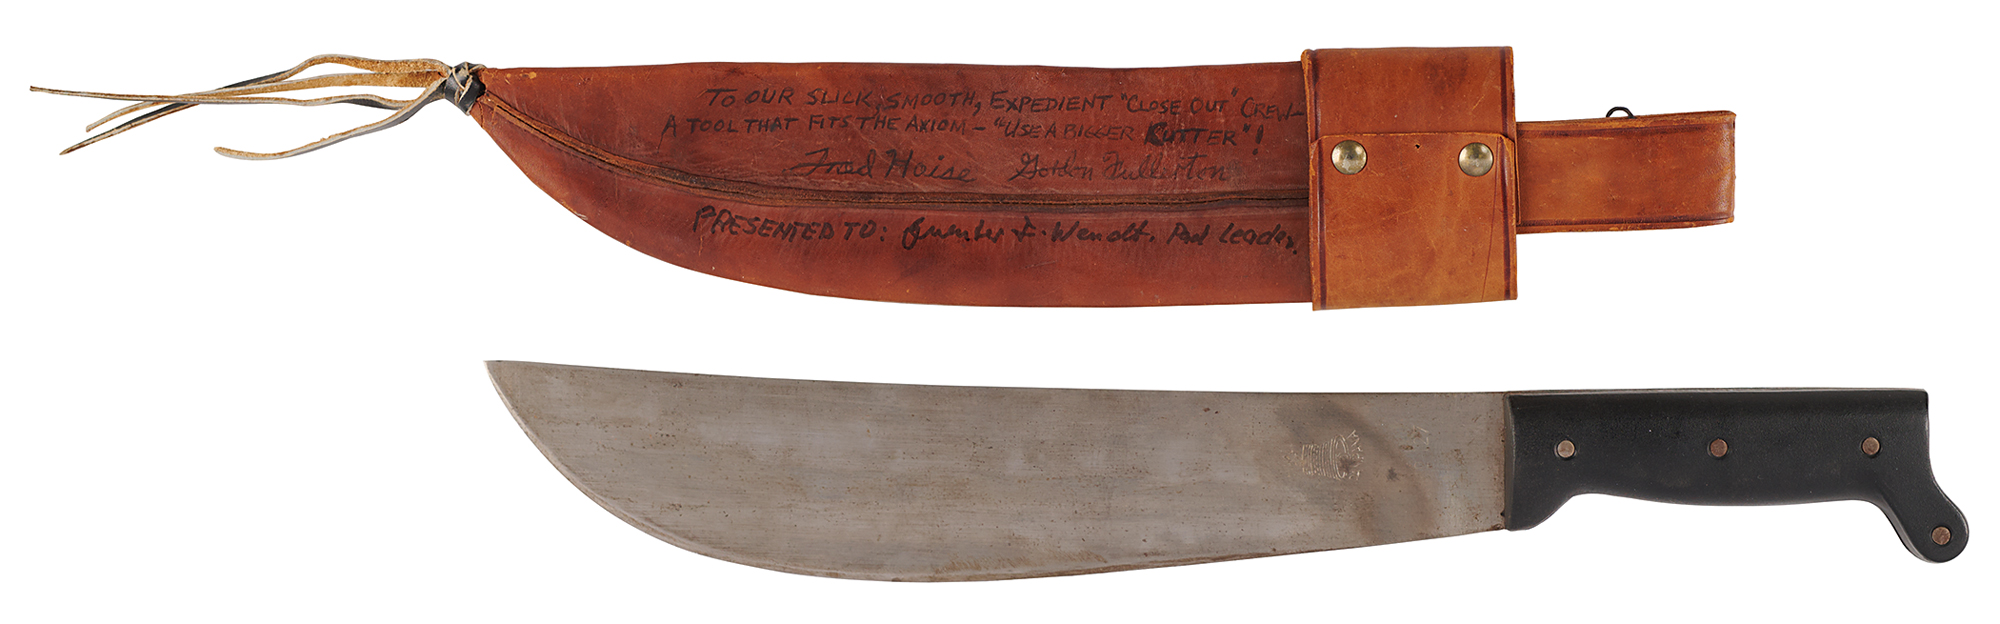 TO OUR SLICK, SMOOTH, EXPEDIENT "CLOSE OUT" CREW—
A TOOL THAT FITS THE AXIOM — "USE A BIGGER CUTTER"!
Fred Haise Gordon Fullerton
PRESENTED TO: Guenter F. Wendt. Pad Leader.